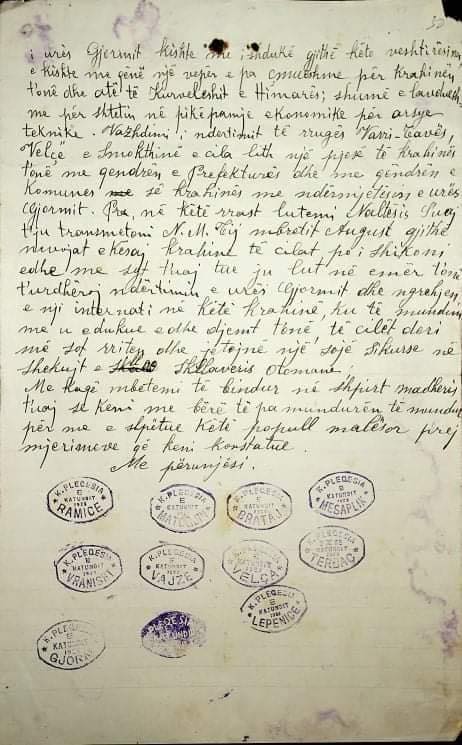 i urës Gjormit kishte me i zhdukë gjithë këto veshtirësina
e kishte me qënë një vepër e pa çmushme për krahinën
t'onë dhe atë të Kurveleshit e Himarës; shumë e lavdueshme
me për shtetin në pikëpamje ekonomike për arsye
teknike. Vazhdimi i ndertimit të rrugës Vajzi-Gavës,
Velçë e Smokthinë e cila lith një pjesë të krahinës
t'onë me qendren e Prefekturës dhe me qendrën e
Komunës së krahinës me ndërmjetësin e urës
Gjormit. Pra, në këtë rrast lutemi Naltësis Suaj
t'ju transmetoni N. M. Tij mbretit August gjithë
nevojat e kësaj krahine të cilat po i shikoni
edhe me syt tuaj tue ju lut në emër t'onë
t'urdhëroj ndërtimin e urës Gjormit dhe ngrehjen
e nji internati në këtë krahinë ku të mundin
me u edukue edhe djemt t'onë të cilët deri
më sot rriten dhe jetojnë një sojë sikurse në
shekujt e Skllavëris otomane.
Me kaqë mbetemi të bindur në shpirt madhëris
t'uaj se keni me bërë të pa mundurën të mundur
për me e shpëtue këtë popull malësor prej
mjerimeve që keni konstatue.
Me përunjësi.
K. PLEQESIA E KATUNDIT RAMICE
K. PLEQESIA E KATUNDIT
K. PLEQESIA E KATUNDIT BRATAJ
K. PLEQESIA E KATUNDIT MESAPLIK
K. PLEQESIA E KATUNDIT VRANISHT
K. PLEQESIA E KATUNDIT VAJZE
K. PLEQESIA E KATUNDIT VELÇA
K. PLEQESIA E KATUNDIT TERBAC
K. PLEQESIA E KATUNDIT GJORM
PLEQESIA
K. PLEQESIA E KATUNDIT LEPENICE